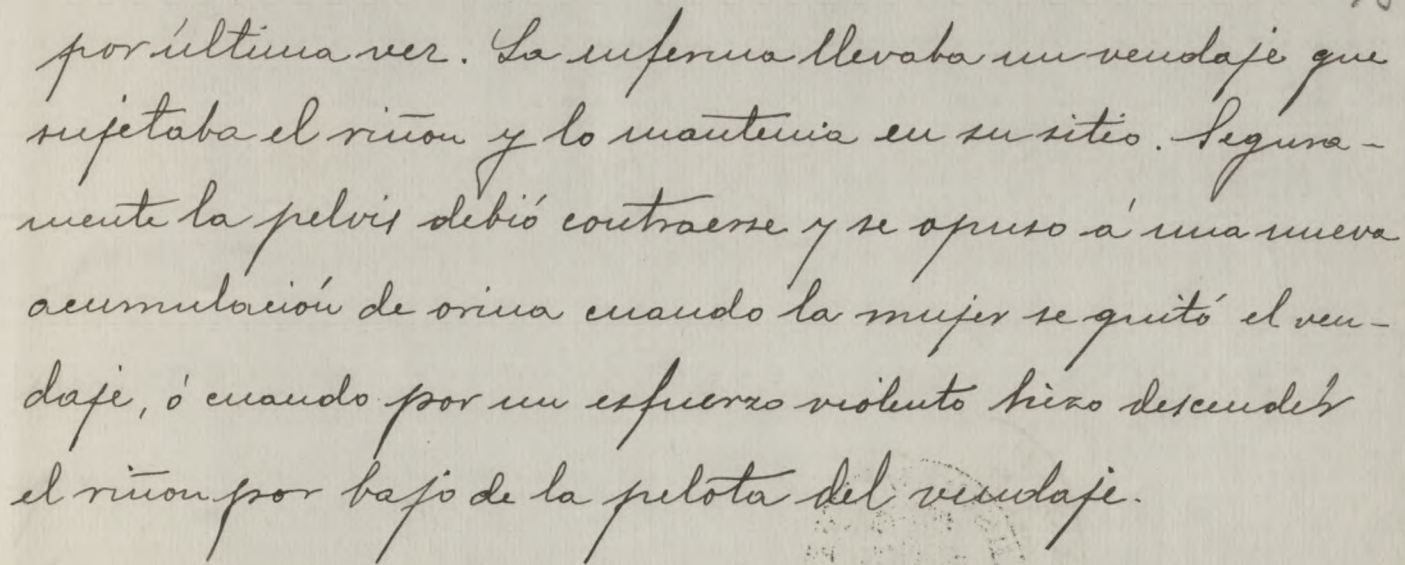 por última vez. La enferma llevaba un vendaje que
sujetaba el riñon y lo mantenia en su sitio. Segura-
mente la pelvis debió contraerse y se opuso á una nueva
acumulación de orina cuando la mujer se quitó el ven-
daje, ó cuando por un esfuerzo violento hizo descender
el riñon por bajo de la pelota del vendaje.